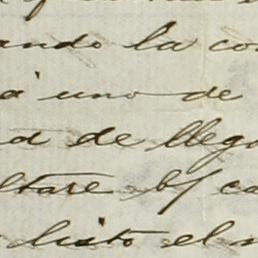 ando la co
a uno de
d de llego
ltare b/ ca
listo el n